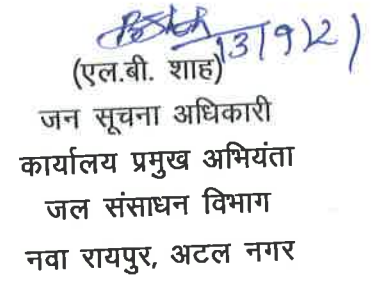 13/9/21
(एल.बी. शाह)
जन सूचना अधिकारी
कार्यालय प्रमुख अभियंता
जल संसाधन विभाग
नवा रायपुर, अटल नगर